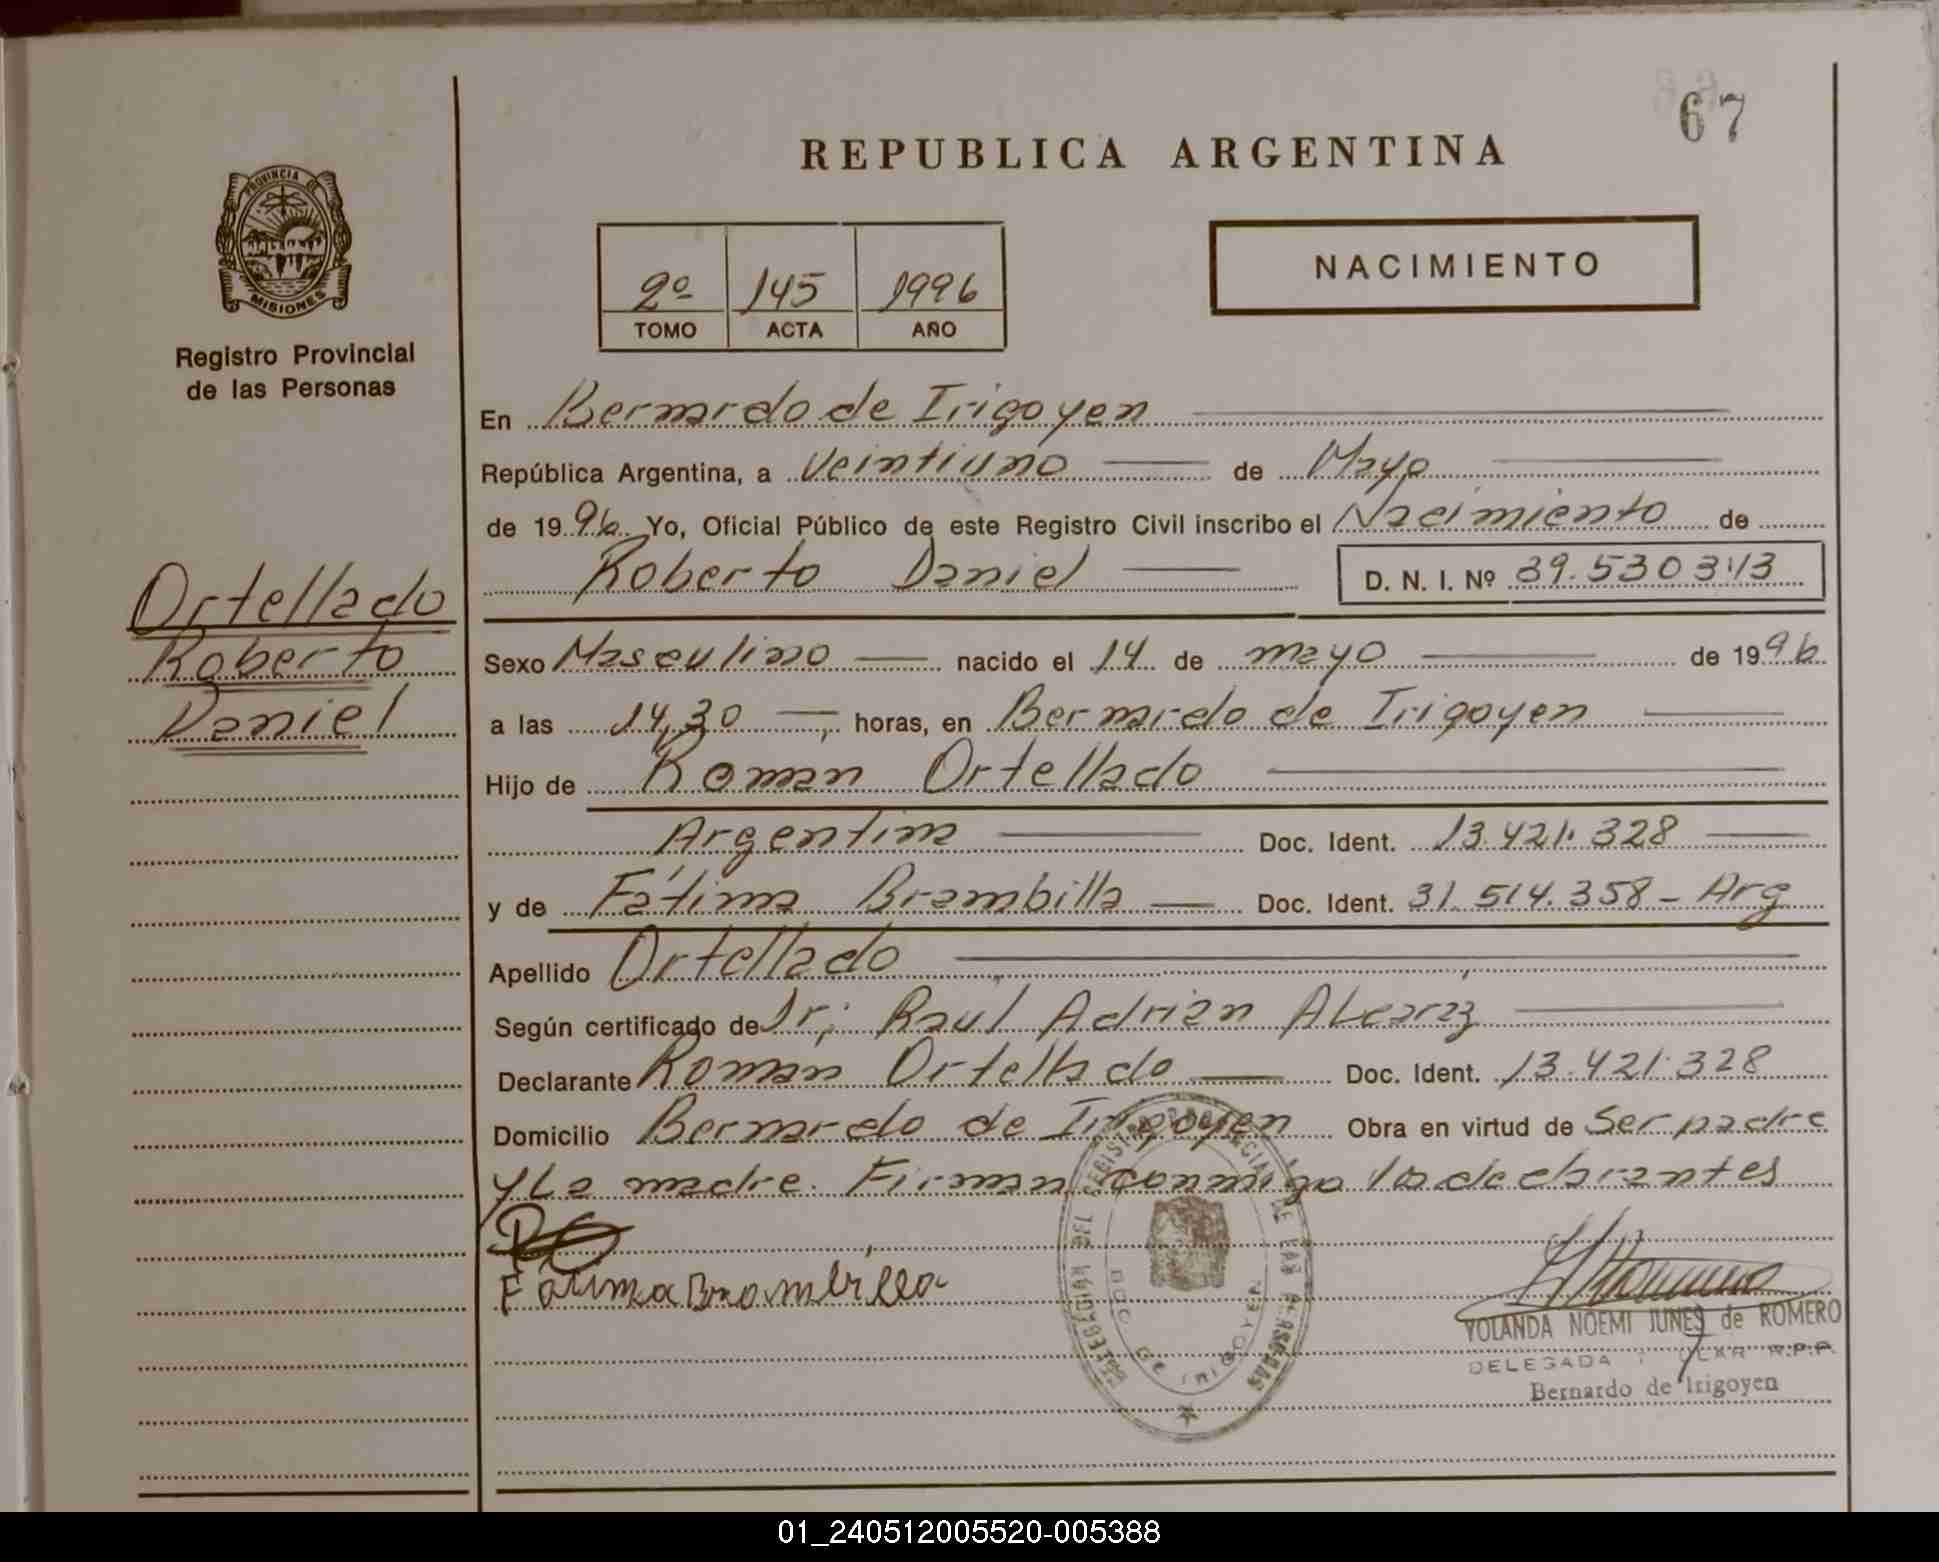 67
REPUBLICA ARGENTINA
PROVINCIA DE
MISIONES
Registro Provincial
de las Personas
NACIMIENTO
2º 145 1996
TOMO ACTA AÑO
En Bernardo de Irigoyen
República Argentina, a veintiuno de Mayo
de 1996 Yo, Oficial Público de este Registro Civil inscribo el Nacimiento de
Roberto Daniel D. N. I. Nº 39.530313
Ortellado
Roberto
Daniel
Sexo Masculino nacido el 14 de mayo de 1996
a las 14,30, horas, en Bernardo de Irigoyen
Hijo de Roman Ortellado
Argentina Doc. Ident. 13.421.328
y de Fátima Brambilla Doc. Ident. 31.514.358 - Arg
Apellido Ortellado
Según certificado de Dr; Raúl Adrián
Declarante Román Ortellado Doc. Ident. 13.421.328
Domicilio Bernardo de Irigoyen Obra en virtud de Ser padre
y La madre. Firman conmigo declarantes
Fátima Brambilla
REGISTRO PROVINCIAL DE LAS PERSONAS
BDO. DE IRIGOYEN
YOLANDA NOEMI JUNES de ROMERO
DELEGADA R.P.P.
Bernardo de Irigoyen
01_240512005520-005388